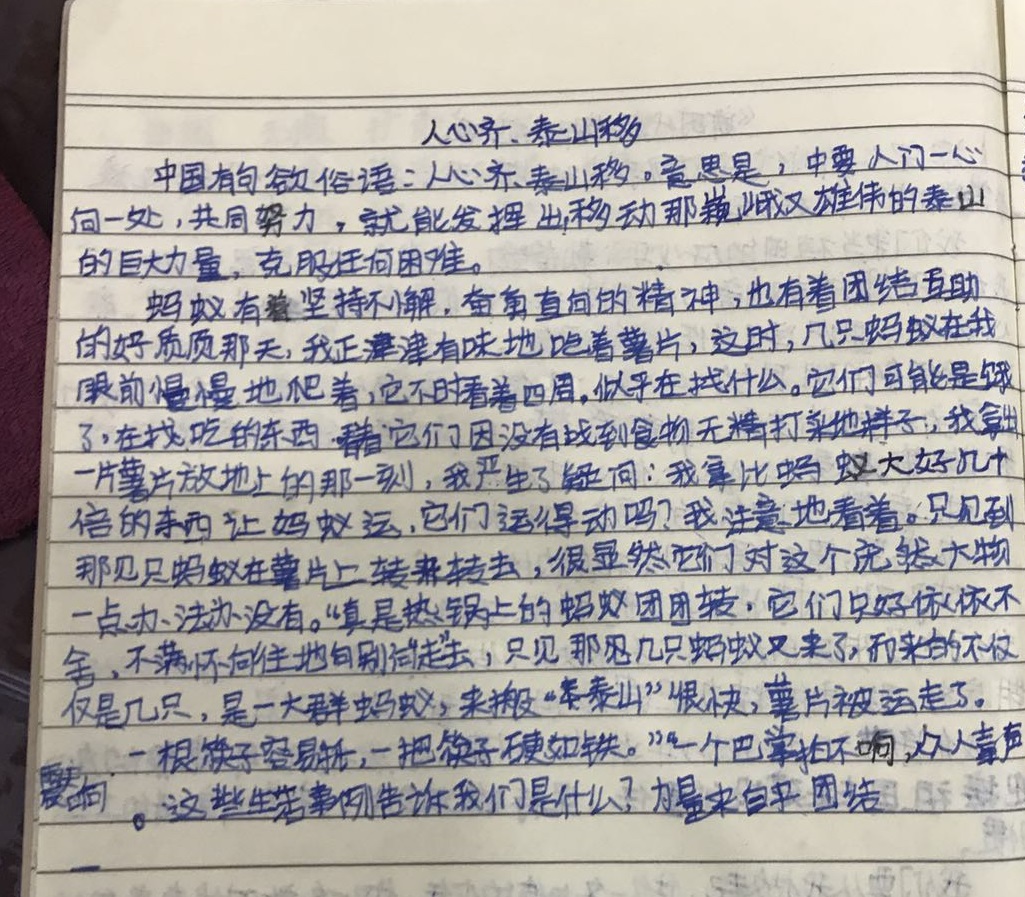 人心齐、泰山移
中国有句欲俗语:人心齐、泰山移。意思是,中要人们一心
向一处,共同努力,就能发挥出移动那巍峨又雄伟的泰山
的巨大力量,克服任何困难。
蚂蚁有着坚持不懈,奋勇直向的精神,也有着团结互助
的好质质那天,我正津津有味地吃着薯片,这时,几只蚂蚁在我
眼前慢慢地爬着,它不时看着四周,似乎在找什么。它们可能是饿
了,在找吃的东西。看它们因没有找到食物无精打采地样子,我拿出
一片薯片放地上的那一刻,我产生了疑问:我拿比蚂蚁大好几十
倍的东西让蚂蚁运,它们运得动吗?我注意地看着。只见到
那见只蚂蚁在薯片上转来转去,很显然它们对这个庞然大物
一点办法办没有。“真是热锅上的蚂蚁团团转,它们只好依依不
舍、不满怀向往地向别走去,只见那几只蚂蚁又来了,而来的不仅
仅是几只,是一大群蚂蚁,来搬“泰山”很快,薯片被运走了。
一根筷子容易折,一把筷子硬如铁。”“一个巴掌拍不响,众人声
响。这些生事例告诉我们是什么?力量来自乎团结